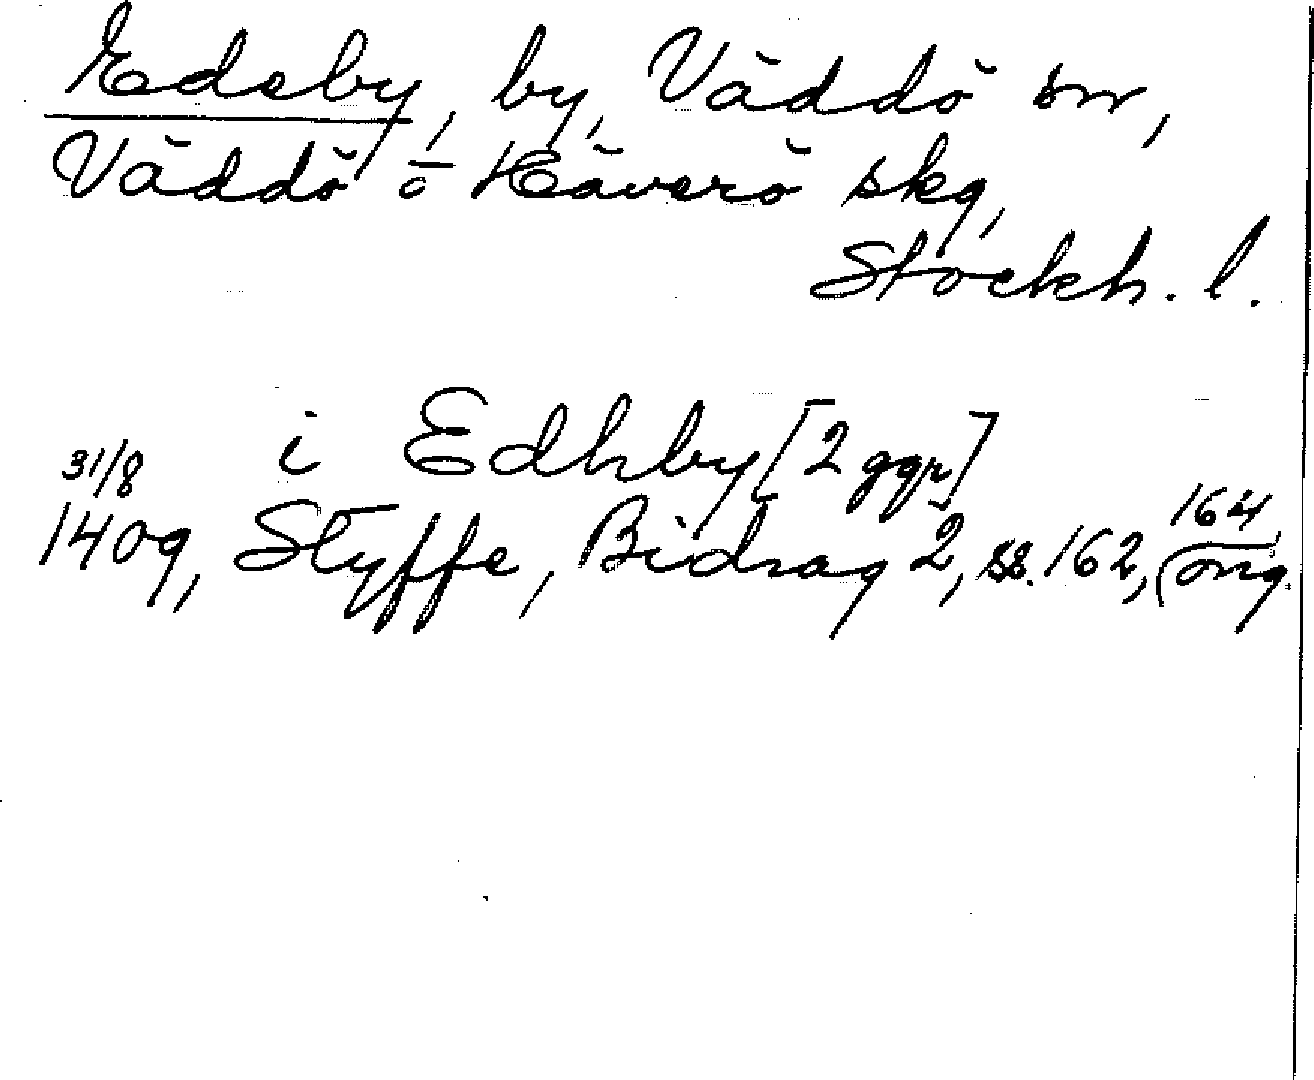 Edeby, by, Väddö sn,
Väddö o Häverö skg,
Stockh. l.
i Edhby [2 ggr]
31/8
1409, Styffe, Bidrag 2, ss. 162, 164
(orig.